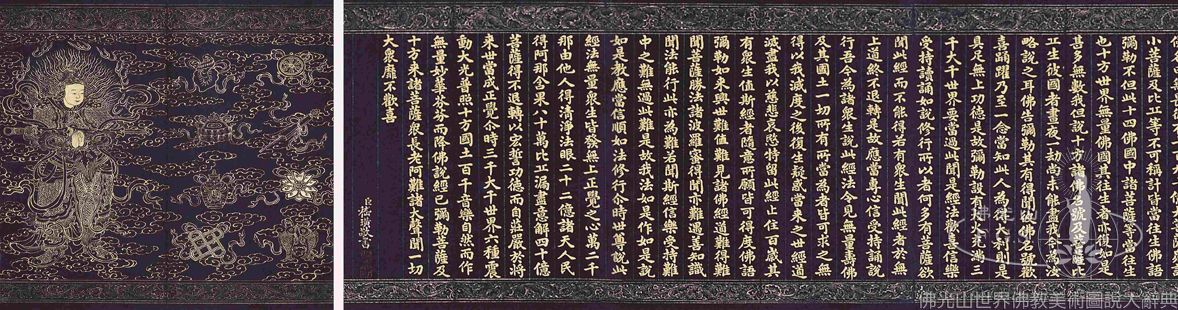 小菩薩及比丘等不可稱計皆當往生佛語
彌勒不但此十四佛國中諸菩薩等當往生
也十方世界無量佛國其往生者亦復如是
甚多無數我但說十方諸佛名號及菩薩比
丘生彼國者晝夜一劫尚未能盡我今為汝
略說之耳佛告彌勒其有得聞彼佛名號歡
喜踊躍乃至一念當知此人為得大利則是
具足無上功德是故彌勒設有大火充滿三
千大千世界要當過此聞是經法歡喜信樂
受持讀誦如說修行所以者何多有菩薩欲
聞此經而不能得若有衆生聞此經者於無
上道終不退轉是故應當專心信受持誦說
行吾今為諸衆生說此經法令見無量壽佛
及其國土一切所有所當為者皆可求之無
得以我滅度之後復生疑惑當來之世經道
滅盡我以慈悲哀愍特留此經止住百歲其
有衆生值斯經者隨意所願皆可得度佛語
彌勒如來興世難值難見諸佛經道難得難
聞菩薩勝法諸波羅蜜得聞亦難遇善知識
聞法能行此亦為難若聞斯經信樂受持難
中之難無過此難是故我法如是作如是說
如是教應當信順如法修行尒時世尊說此
經法無量衆生皆發無上正覺之心萬二千
那由他人得清淨法眼二十二億諸天人民
得阿那含果八十萬比丘漏盡意解四十億
菩薩得不退轉以宏誓功德而自莊嚴於將
來世當成正覺尒時三千大千世界六種震
動大光普照十方國土百千音樂自然而作
無量妙華芬芬而降佛說經已彌勒菩薩及
十方來諸菩薩衆長老阿難諸大聲聞一切
大衆靡不歡喜
佛光山世界佛教美術圖說大辭典